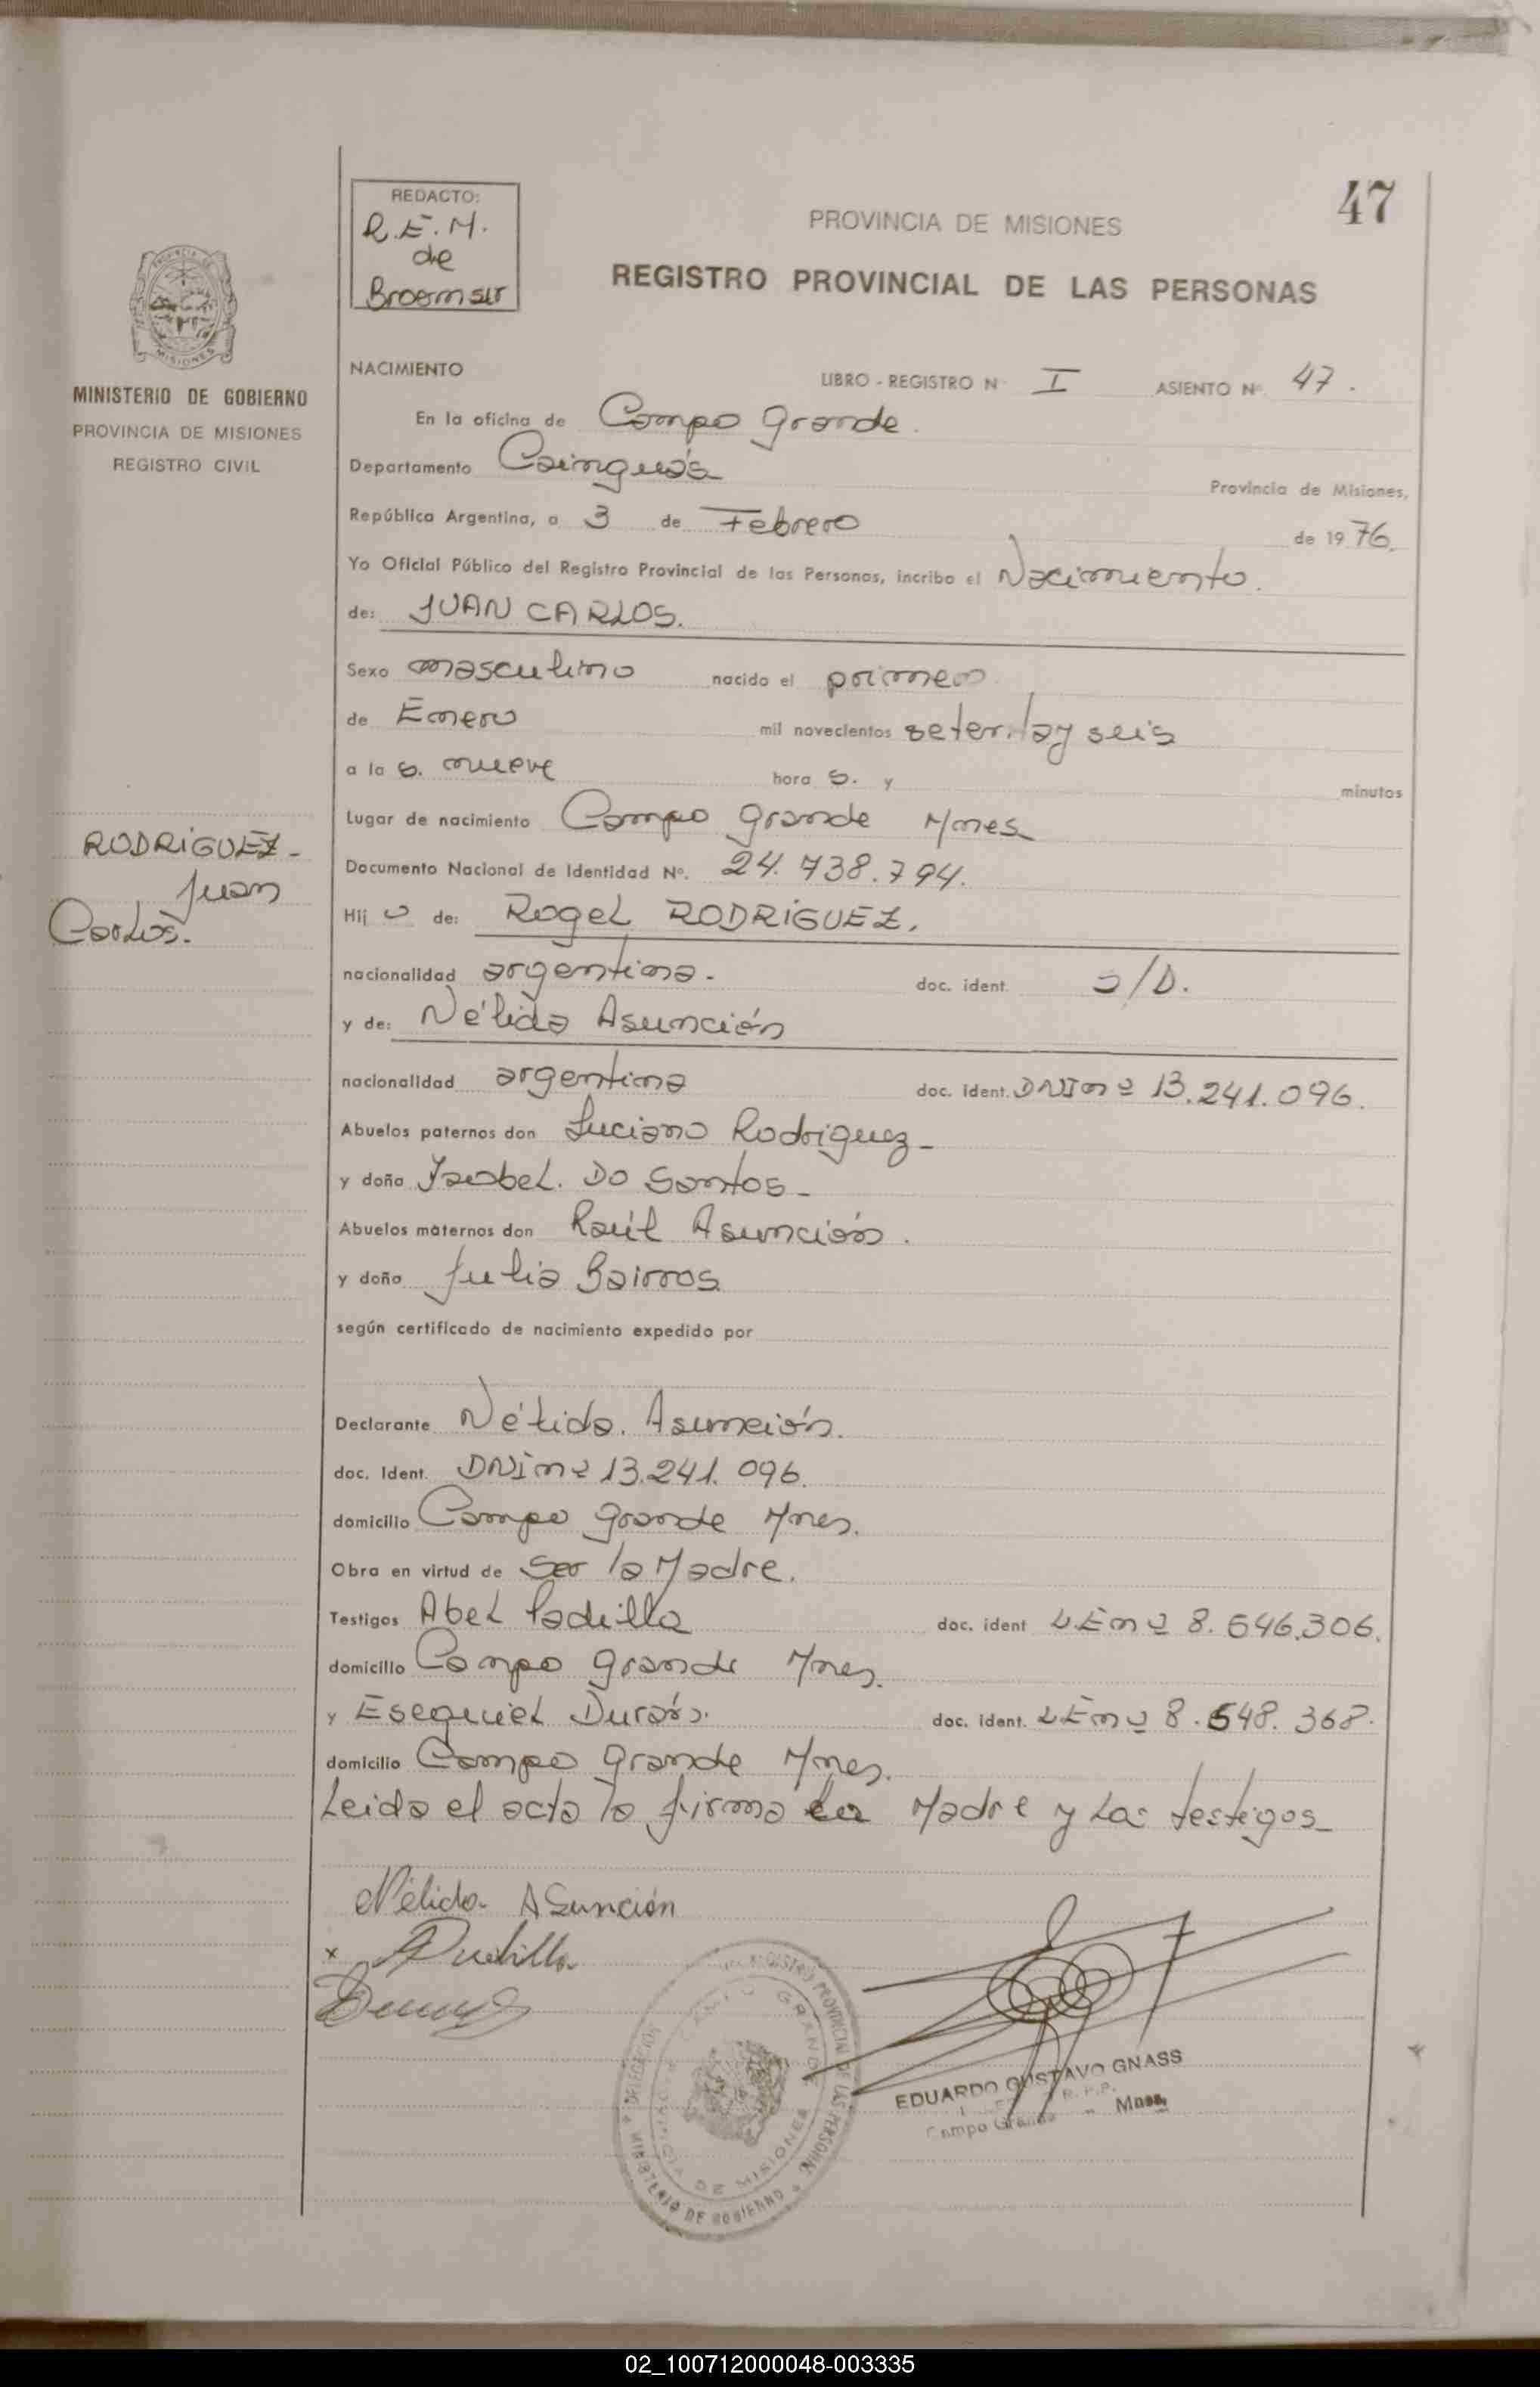 47
REDACTO:
R.E.M.
de
Broemser
PROVINCIA DE MISIONES
REGISTRO PROVINCIAL DE LAS PERSONAS
MISIONES
MINISTERIO DE GOBIERNO
PROVINCIA DE MISIONES
REGISTRO CIVIL
NACIMIENTO LIBRO - REGISTRO N° I ASIENTO N° 47.
En la oficina de Campo Grande.
Departamento Cainguás Provincia de Misiones,
República Argentina, a 3 de Febrero de 1976.
Yo Oficial Público del Registro Provincial de las Personas, incribo el Nacimiento.
de: JUAN CARLOS.
Sexo masculino nacido el primero
de Enero mil novecientos setentay seis
a la s. nueve hora s. y minutos
Lugar de nacimiento Campo Grande Mnes
RODRIGUEZ-
Juan
Carlos.
Documento Nacional de Identidad N°. 24.738.794.
Hij o de: Rogel RODRIGUEZ.
nacionalidad argentina. doc. ident. s/D.
y de: Nélida Asunción
nacionalidad argentina doc. ident. DNI nº 13.241.096.
Abuelos paternos don Luciano Rodriguez-
y doña Ysabel. Do Santos-
Abuelos maternos don Raúl Asunción.
y doña Julia Bairros
según certificado de nacimiento expedido por
Declarante Nélida. Asunción.
doc. ident. DNI nº 13.241.096.
domicilio Campo Grande Mnes.
Obra en virtud de ser la Madre.
Testigos Abel Padilla doc. ident LE nº 8.546.306.
domicilio Campo Grande Mnes.
y Esequiel Durán. doc. ident. LE nº 8.548.368.
domicilio Campo Grande Mnes.
Leida el acta la firma la Madre y los testigos-
Nélida Asunción
x APadilla
REGISTRO PROVINCIAL DE LAS PERSONAS
DELEGACION
MINISTERIO DE GOBIERNO
CAMPO GRANDE
PROVINCIA DE MISIONES
EDUARDO GUSTAVO GNASS
R.P.P.
Campo Grande - Mnes.
02_100712000048-003335